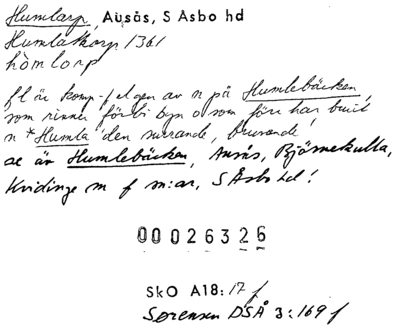 Humlarp, Ausås, S Åsbo hd
Humlathorp 1361
homlorp
fl är komp-f el gen av n på Humlebäcken,
som rinner förbi byn o som förr har burit
n *Humla 'den surrande, brusande'
se äv Humlebäcken, Ausås, Björnekulla,
Kvidinge m fl sn:ar, S Åsbo hd!
00026326
SkO A18:17 f
Sørensen DSÅ 3:169 f